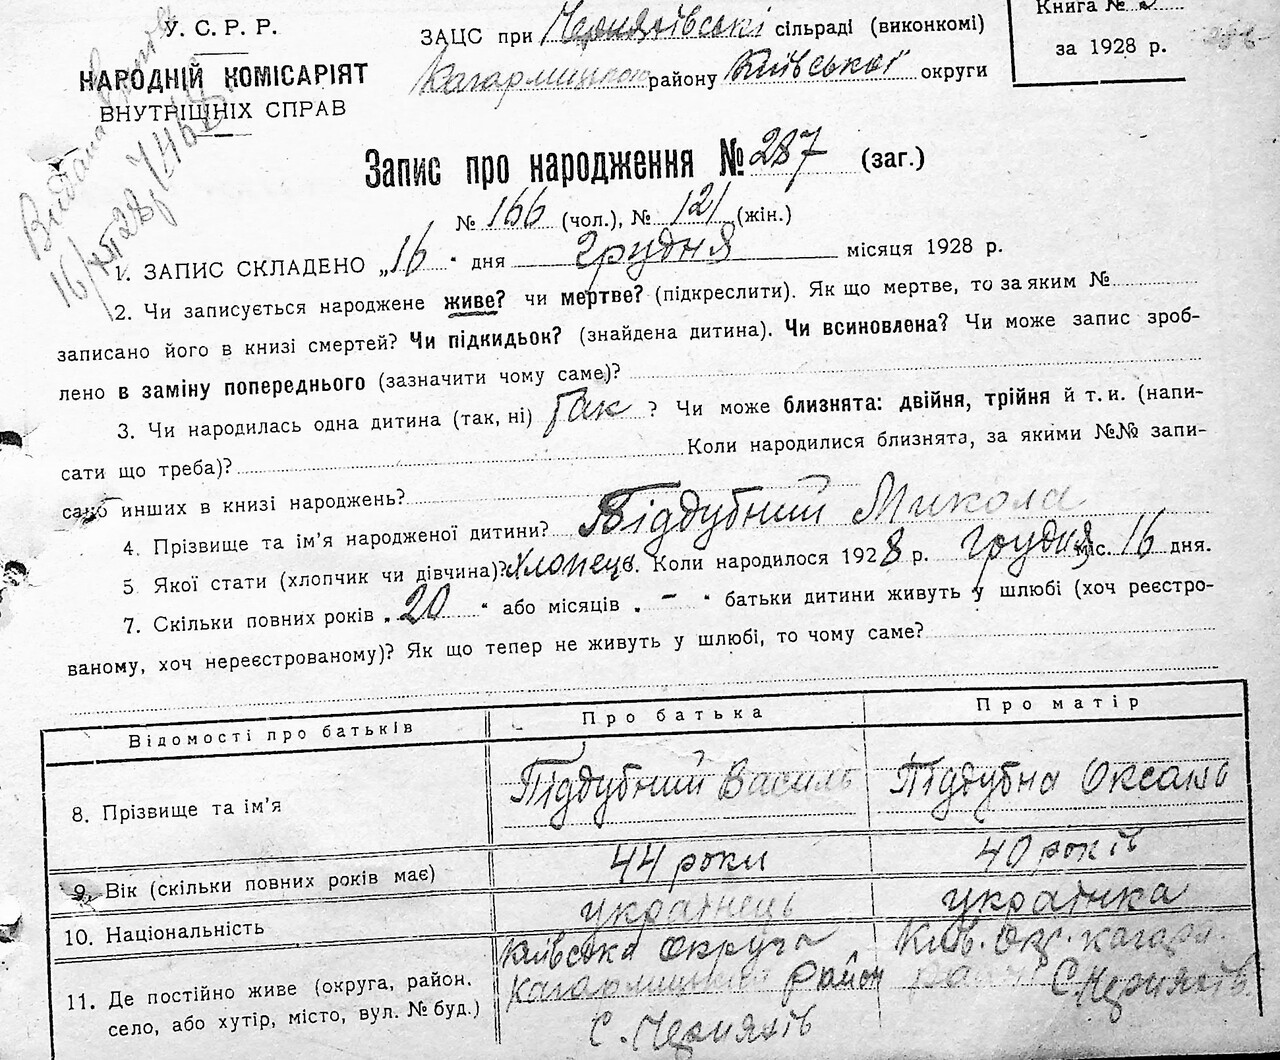 У.С.Р.Р.
НАРОДНІЙ КОМІСАРІЯТ
ВНУТРІШНІХ СПРАВ
ЗАЦС при Черняхівські сільраді (виконкомі)
Кагарлицького району Київської округи
Книга №
за 1928 р.
Видана
16/XII 28 р.
Запис про народження № 287 (заг.)
№ 166 (чол.), № 121 (жін.)
1. ЗАПИС СКЛАДЕНО „16" дня грудня місяця 1928 р.
2. Чи записується народжене живе? чи мертве? (підкреслити). Як що мертве, то за яким №
записано його в книзі смертей? Чи підкидьок? (знайдена дитина). Чи всиновлена? Чи може запис зроб-
лено в заміну попереднього (зазначити чому саме)?
3. Чи народилась одна дитина (так, ні) Так ? Чи може близнята: двійня, трійня й т. и. (напи-
сати що треба)? Коли народилися близнята, за якими №№ запи-
сано инших в книзі народжень?
4. Прізвище та ім'я народженої дитини? Піддубний Микола
5 Якої стати (хлопчик чи дівчина)? Хлопець 6. Коли народилося 1928 р. грудня міс. 16 дня.
7. Скільки повних років „20" або місяців „-" батьки дитини живуть у шлюбі (хоч реєстро-
ваному, хоч нереєстрованому)? Як що тепер не живуть у шлюбі, то чому саме?
Відомості про батьків Про батька Про матір
8. Прізвище та ім'я Піддубний Василь Піддубна Оксань
9. Вік (скільки повних років має) 44 роки 40 років
10. Національність українець українка
11. Де постійно живе (округа, район, село, або хутір, місто, вул. № буд.)
Київська округа
Кагарлицький район
с. Черняхів
Київ. Окр. Кагарл.
район с. Черняхів